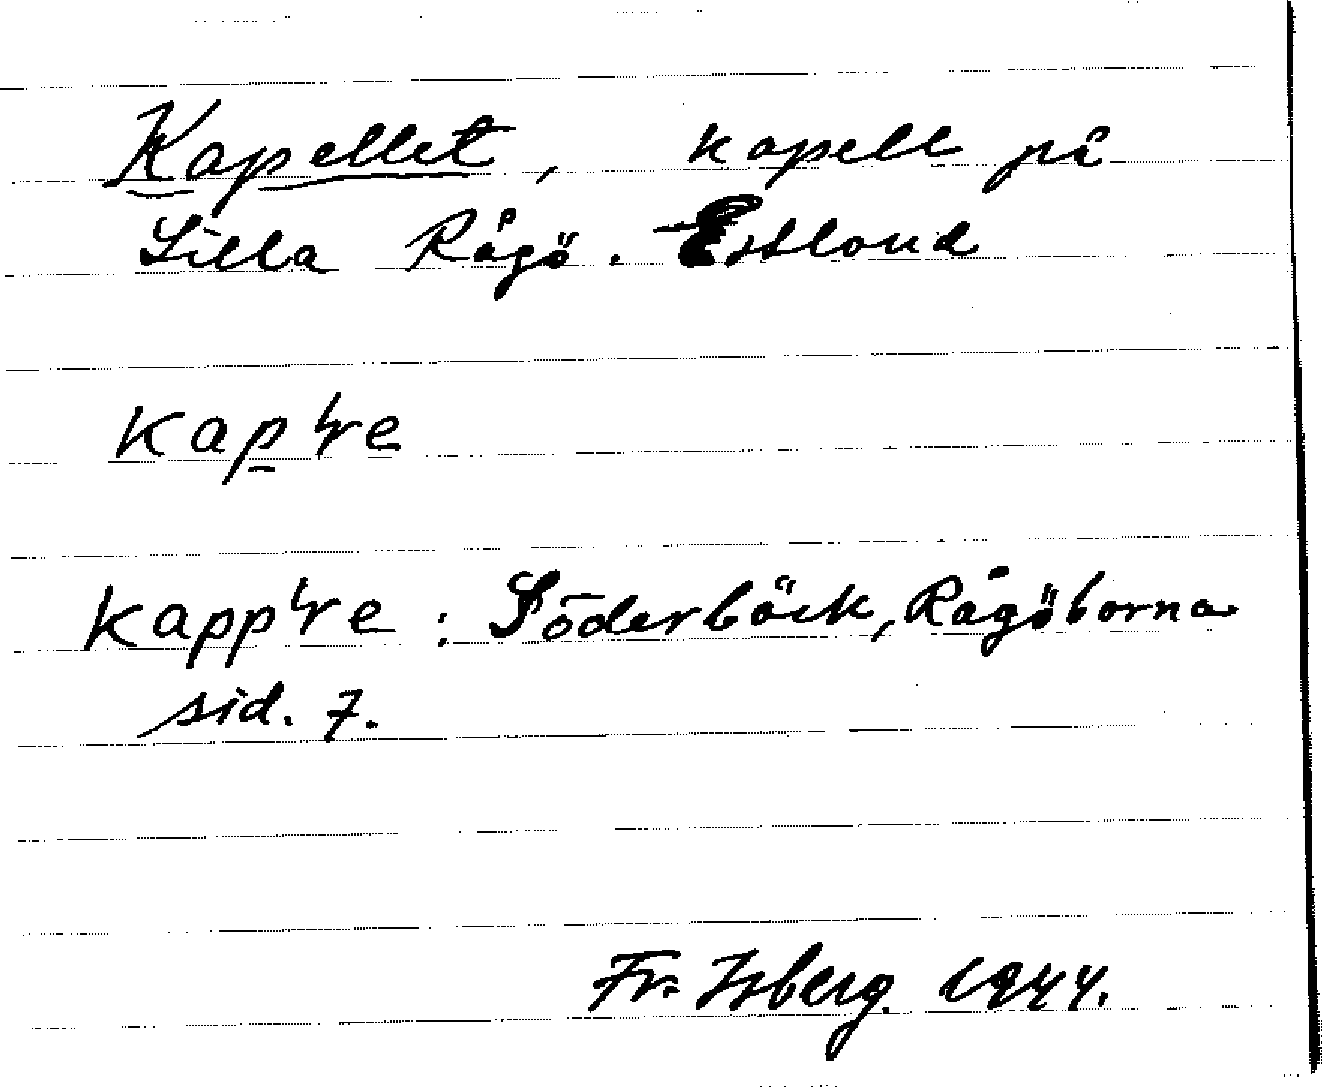 Kapellet, kapell på
Lilla Rågö. Estland
kap
kapp : Söderbäck, Rågöborna
sid. 7.
Fr. Isberg. 1944.